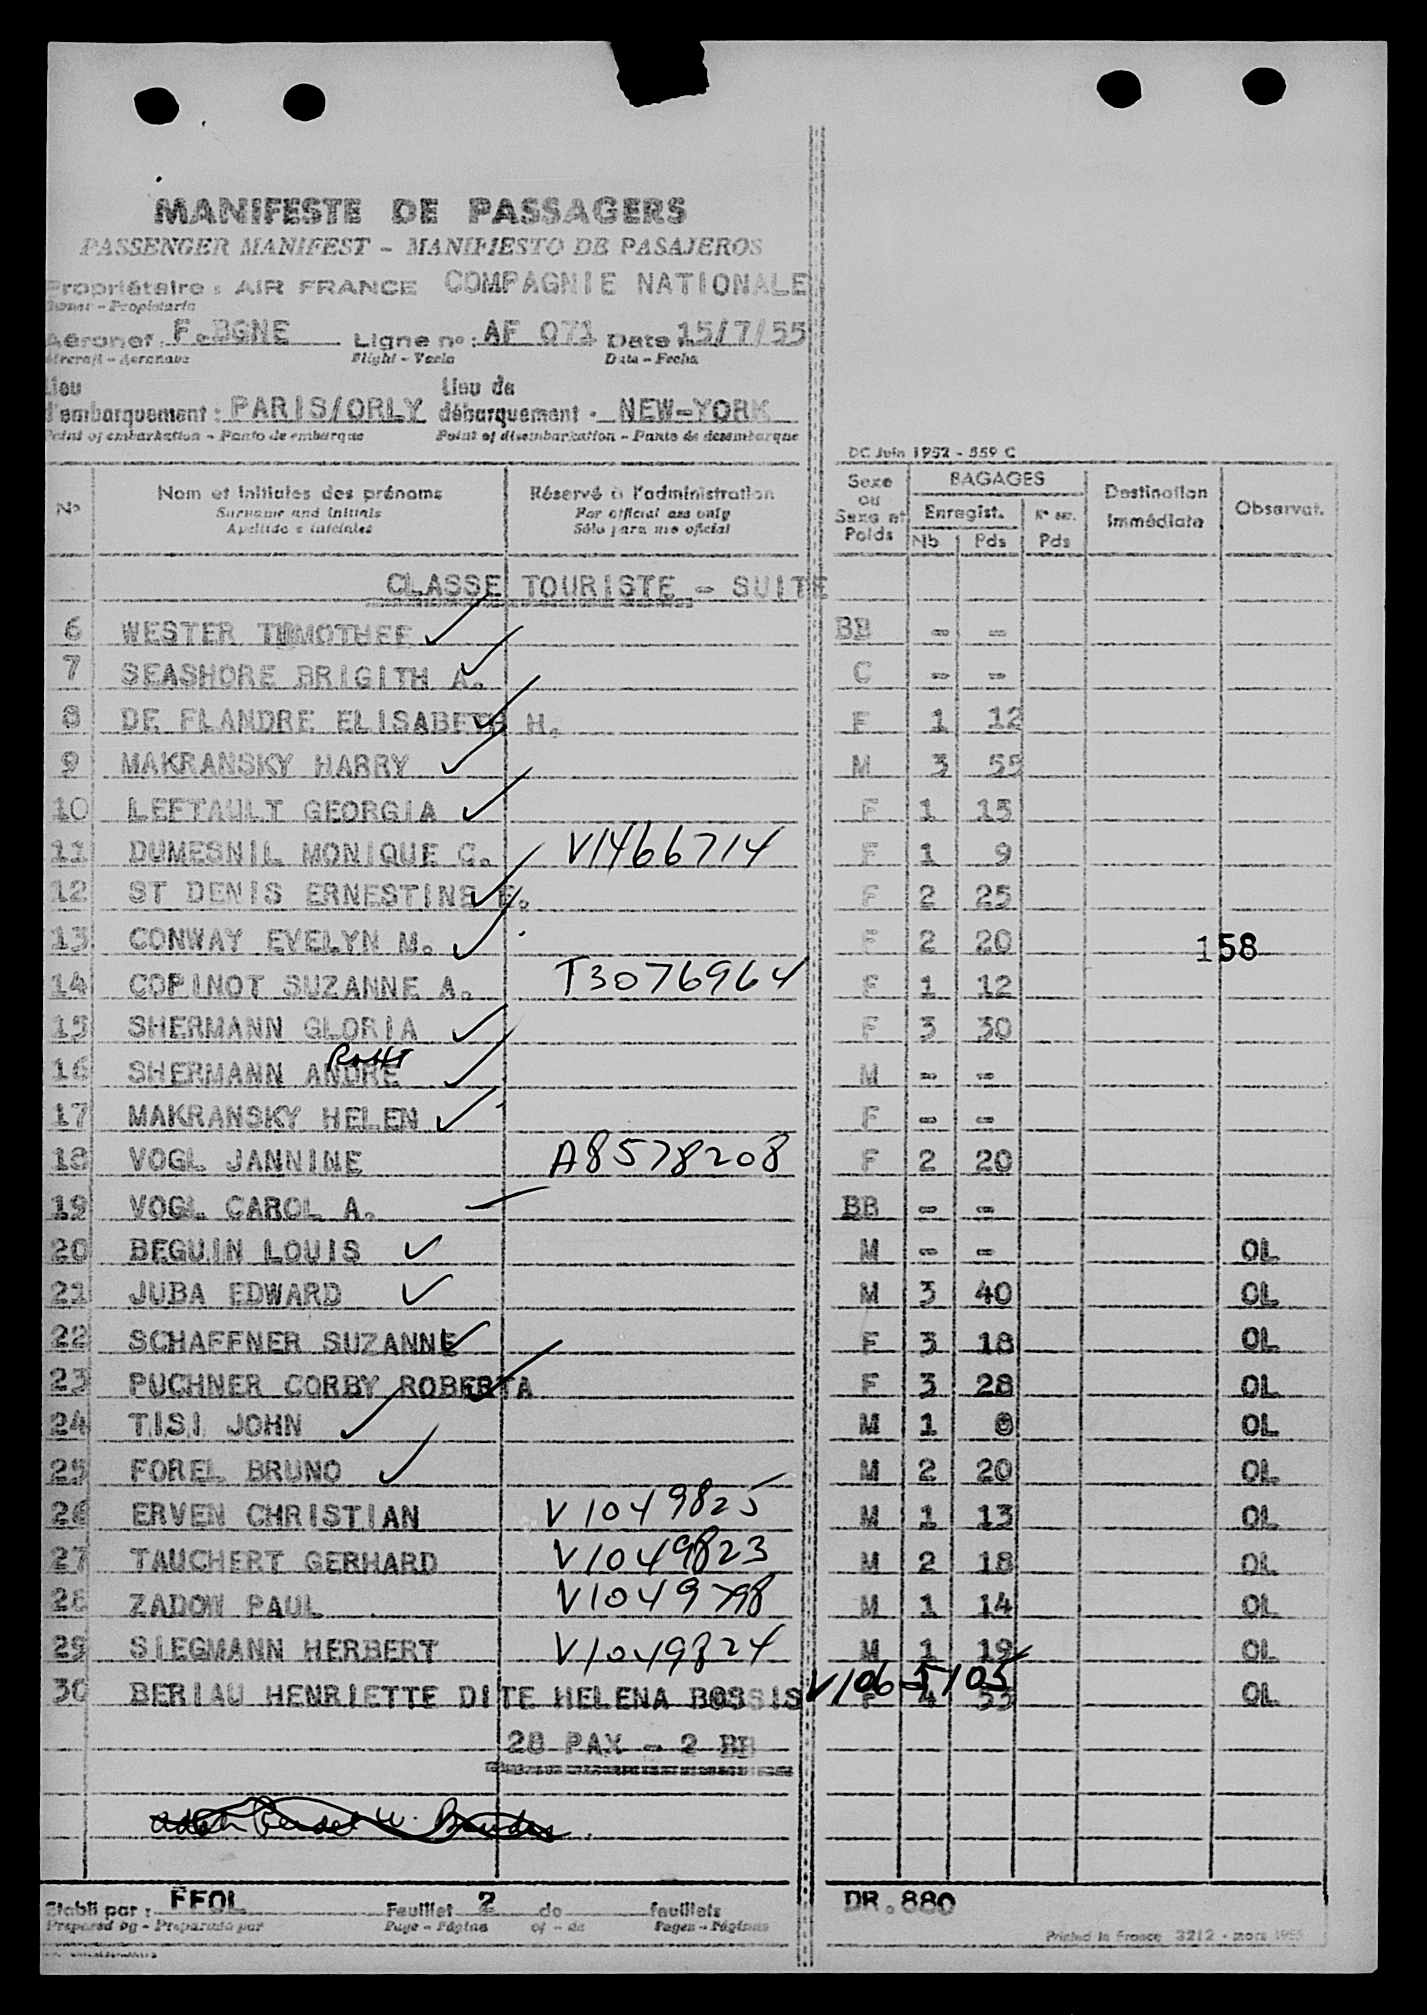 MANIFESTE DE PASSAGERS
PASSENGER MANIFEST - MANIFIESTO DE PASAJEROS
Propriétaire : AIR FRANCE COMPAGNIE NATIONALE
Owner - Propietario
Aéronef : F.BGNE Ligne n° : AF 071 Date 15/7/55
Aircraft - Aeronave Flight - Vuelo Date - Fecha
Lieu Lieu de
d'embarquement : PARIS/ORLY débarquement NEW-YORK
Point of embarkation - Punto de embarque Point of disembarkation - Punto de desembarque
DC Juin 1952 - 559 C
N° Nom et initiales des prénoms Réservé à l'administration Sexe ou Sexe et Poids BAGAGES Enregist. Nb Pds Pds Destination Immédiate Observat.
Surname and initials For official use only
Apellido e iniciales Sólo para uso oficial
CLASSE TOURISTE - SUITE
6 WESTER TIMOTHEE BB - -
7 SEASHORE BRIGITH A. C - -
8 DE FLANDRE ELISABETH H. F 1 12
9 MAKRANSKY HARRY M 3 55
10 LEFTAULT GEORGIA F 1 15
11 DUMESNIL MONIQUE C. V1466714 F 1 9
12 ST DENIS ERNESTINE E. F 2 25
13 CONWAY EVELYN M. F 2 20 158
14 COPINOT SUZANNE A. T3076964 F 1 12
15 SHERMANN GLORIA F 3 30
16 SHERMANN ANDRE M - -
17 MAKRANSKY HELEN F - -
18 VOGL JANNINE A8578208 F 2 20
19 VOGL CAROL A. BB - -
20 BEGUIN LOUIS M - - OL
21 JUBA EDWARD M 3 40 OL
22 SCHAFFNER SUZANNE F 3 18 OL
23 PUCHNER CORBY ROBERTA F 3 28 OL
24 TISI JOHN M 1 8 OL
25 FOREL BRUNO M 2 20 OL
26 ERVEN CHRISTIAN V1049825 M 1 13 OL
27 TAUCHERT GERHARD V1049823 M 2 18 OL
28 ZADOW PAUL V1049798 M 1 14 OL
29 SIEGMANN HERBERT V1049824 M 1 19 OL
30 BERIAU HENRIETTE DITE HELENA BOSSIS V1065105 F 4 53 OL
28 PAX - 2 BB
Etabli par : FFOL Feuillet 2 de feuillets DR.880
Prepared by - Preparado por Page - Página of - de Pages - Páginas
Printed in France 3212 - mars 1955